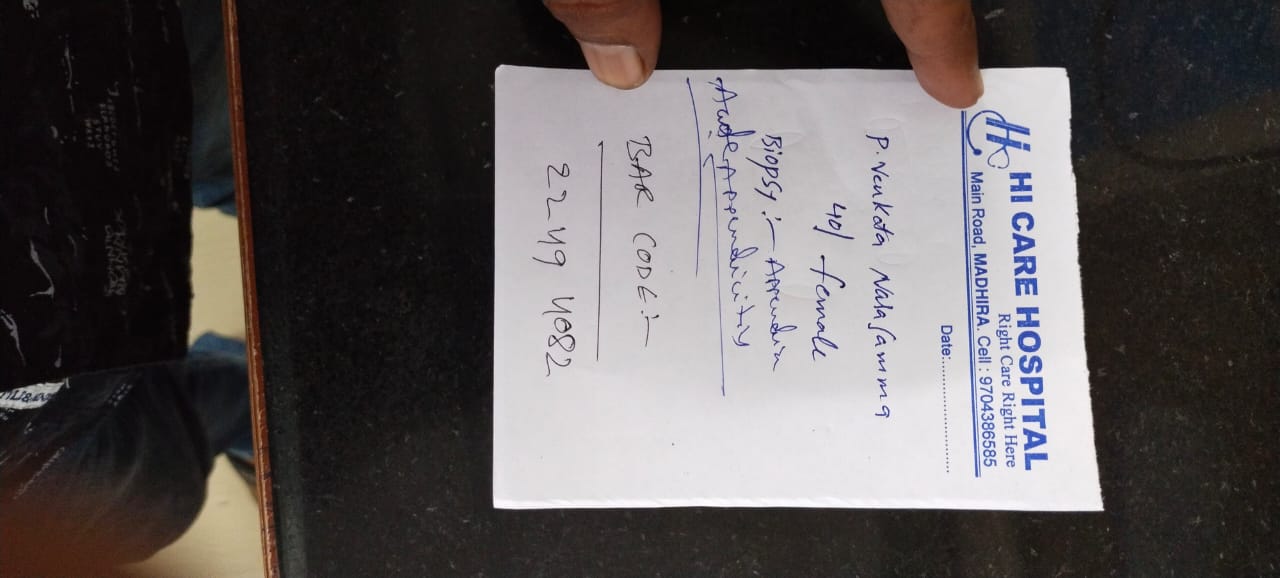 Hi HI CARE HOSPITAL
Right Care Right Here
Main Road, MADHIRA. Cell : 9704386585
Date:......................
P. Venkata Narasamma
40/ female
Biopsy :- Appendix
Acute Appendicitis
BAR CODE :-
2249 4082